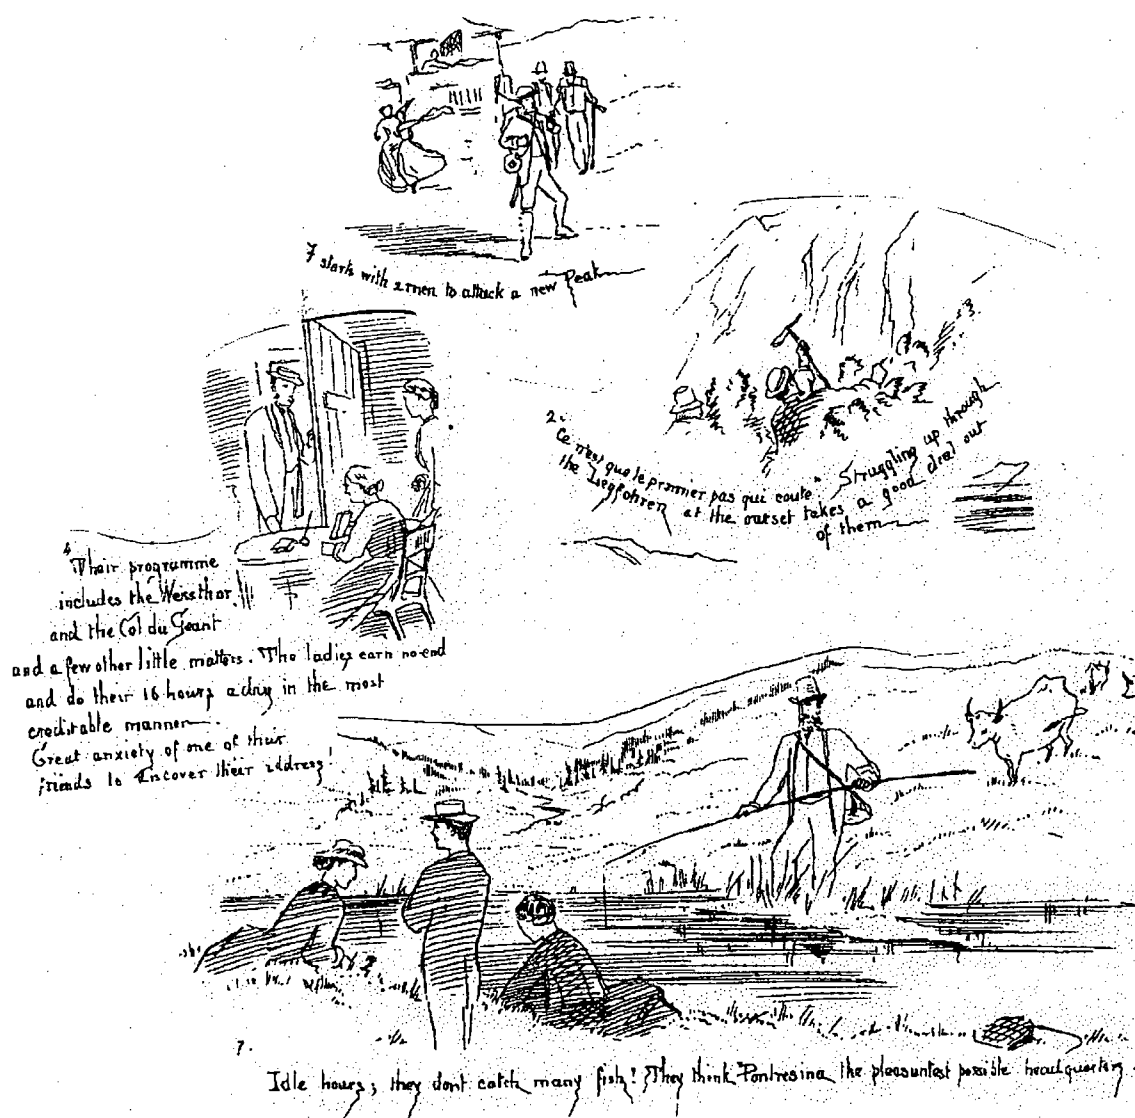 7 starts with 2 men to attack a new Peak
2.
Ce n'est que le premier pas qui coute" Struggling up through
the Legfohren at the outset takes a good deal out
of them
4
Their programme
includes the Weissthor
and the Col du Geant
and a few other little matters. The ladies earn no end
and do their 16 hours a day in the most
creditable manner
Great anxiety of one of their
friends to uncover their address!
7.
Idle hours; they dont catch many fish! They think Pontresina the pleasantest possible headquarters